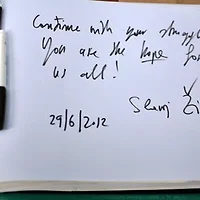 Continue with your struggl
You are the hope for
us all!
Slavoj Ži
29/6/2012